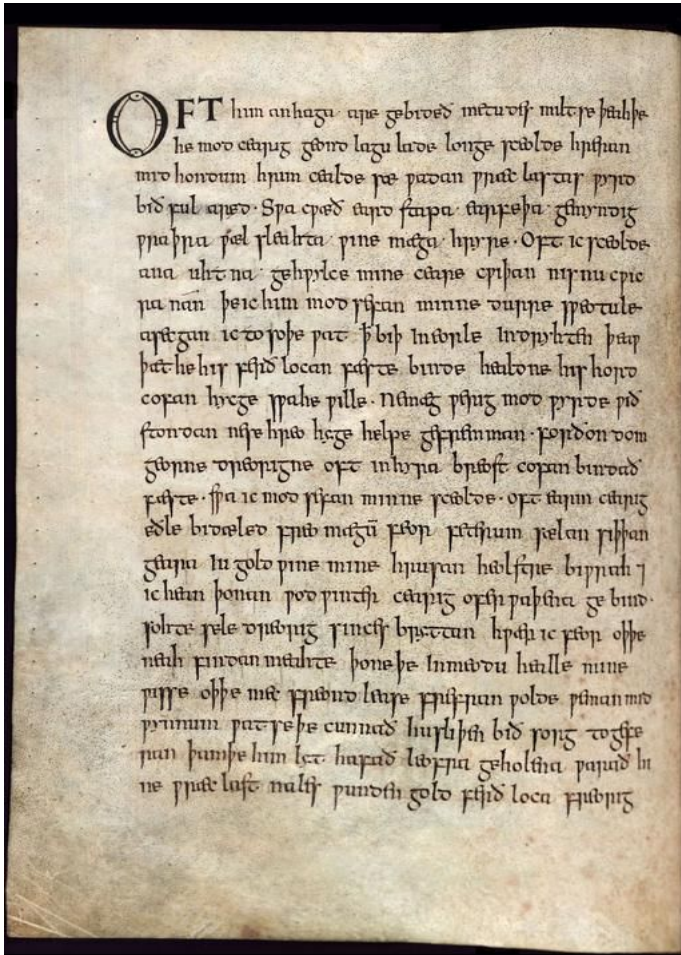 OFT him anhaga · are gebideð metudes miltse þeah þe
he mod cearig geond lagu lade longe sceolde hreran
mid hondum hrim cealde sæ ƿadan ƿræc lastas ƿyrd
bið ful aræd · Sƿa cƿæð eard stapa · earfeþa · gemyndig
ƿraþra ƿæl sleahta · ƿine mæga · hryre · Oft ic sceolde
ana uhtna · gehƿylce mine ceare cƿiþan nis nu cƿic
ra nan þe ic him mod sefan minne durre sƿeotule
asecgan ic to soþe ƿat ꝥ biþ In eorle Indryhten þeaƿ
þæt he his ferð locan fæste binde healdne his hord
cofan hycge sƿa he ƿille · Ne mæg ƿerig mod ƿyrde ƿið
stondan ne se hreo hyge helpe gefremman · forðon dom
georne dreorigne oft in hyra breost cofan bindað
fæste · sƿa ic mod sefan minne sceolde · oft earm cearig
eðle bidæled freo mægū feor feterum sælan siþþan
geara Iu gold ƿine mine hrusan heolstre biƿrah ⁊
ic hean þonan ƿod ƿinter cearig ofer ƿaþena ge bind ·
sohte sele dreorig sinces bryttan hƿær ic feor oþþe
neah findan meahte þone þe In meodu healle mine
ƿisse oþþe mec freond lease frefran ƿolde ƿeman mid
ƿynnum ƿat se þe cunnað hu sliþen bið sorg to gefe
ran þam þe him lyt hafað leofra geholena ƿarað hi
ne ƿræc last nales ƿunden gold ferð loca freorig